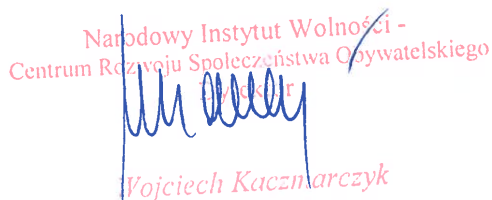 Narodowy Instytut Wolności -
Centrum Rozwoju Społeczeństwa Obywatelskiego
Dyrektor
Wojciech Kaczmarczyk